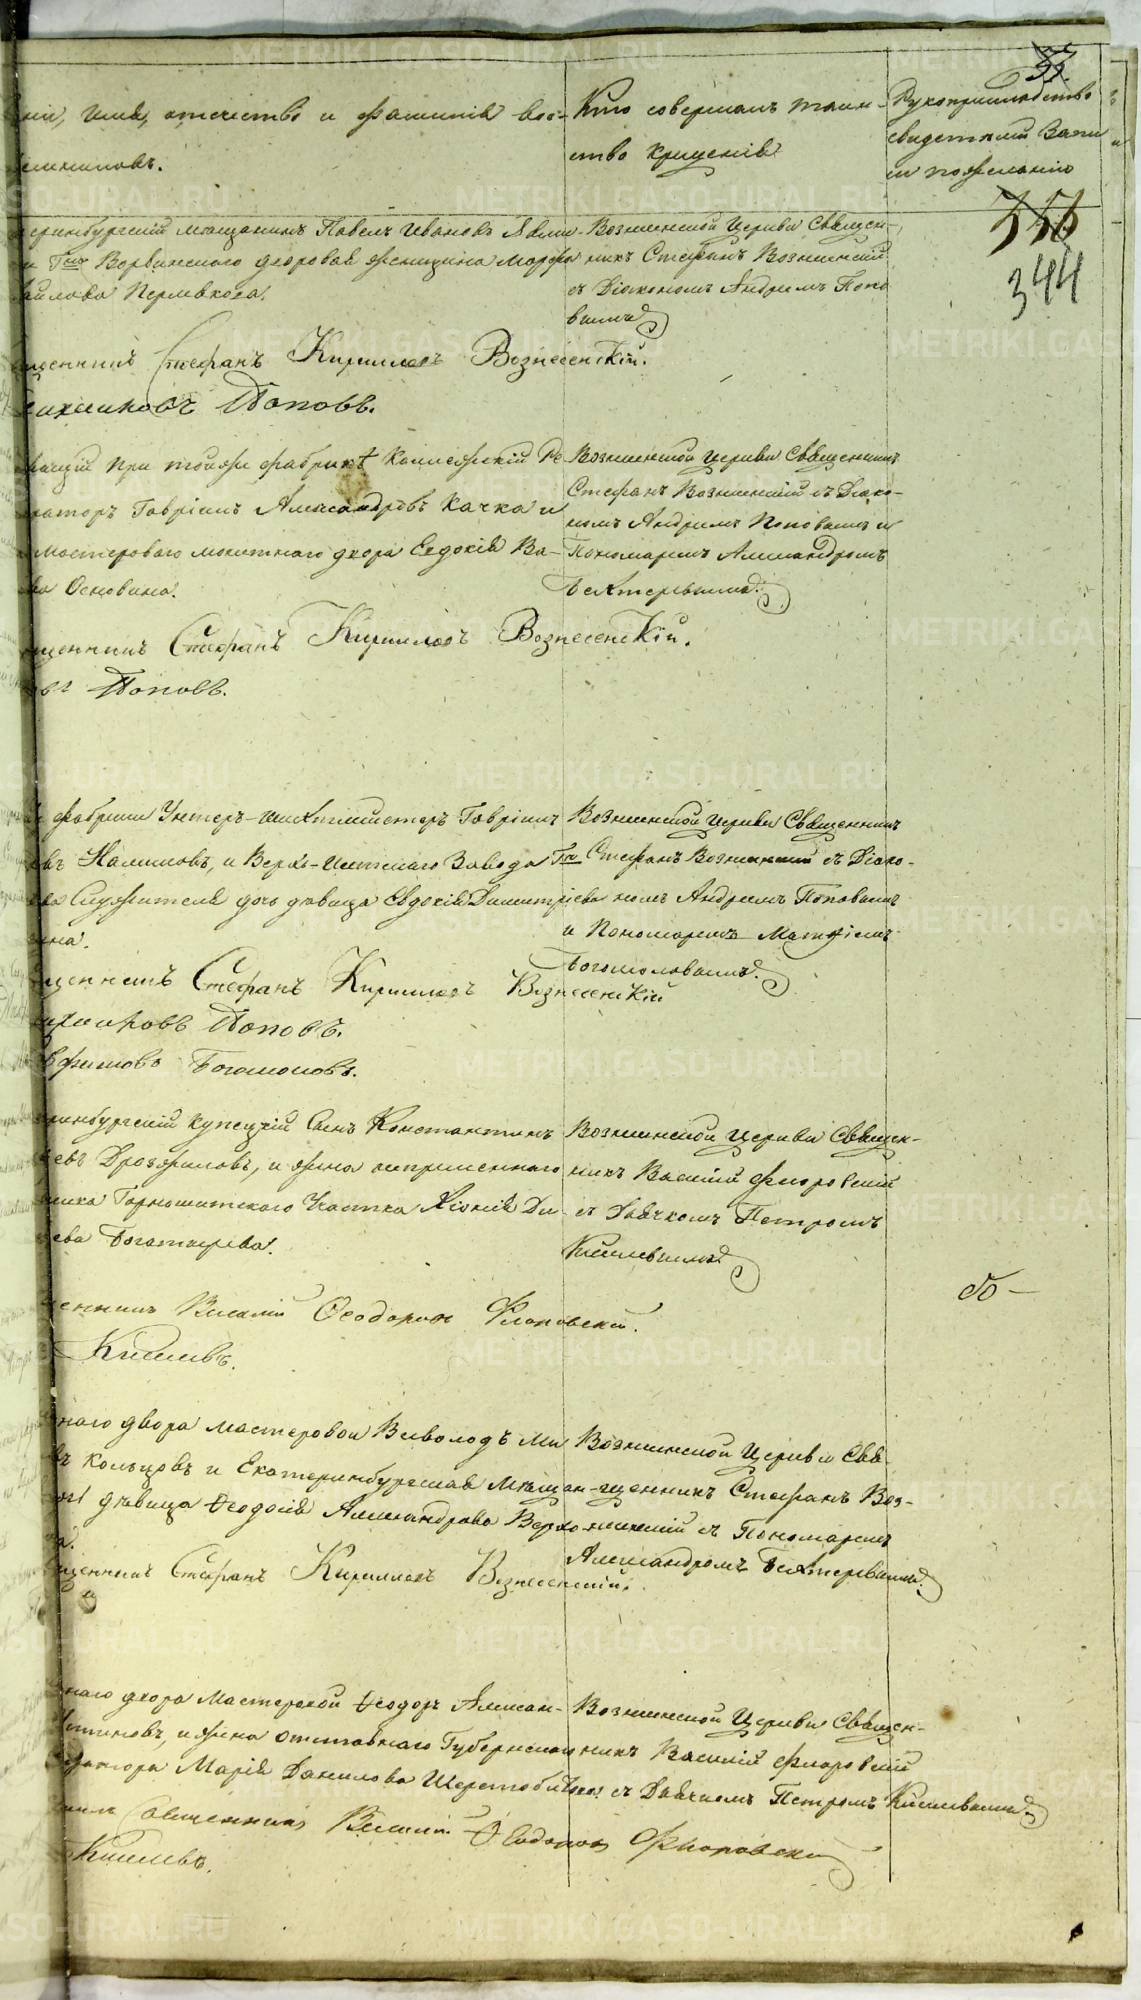 ніи, имя, отечество и фамилія вос-
емниковъ.
Кто совершалъ таин-
ство крещенія
Рукоприкладство
свидетелей записи
по желанію
344
еринбургскій мещанинъ Павелъ Ивановъ
и Гна дворовая женщина Марфа
айлова Пермякова.
Вознесенской Церкви Священ-
никъ Стефанъ Вознесенскій
съ Діакономъ Андреемъ Попо
вымъ
щенникъ Стефанъ Кирилловъ Вознесенскій.
Поповъ.
при тойже фабрикѣ Коллежскій Ре
раторъ Гавріилъ Александровъ Качка и
мастероваго монетнаго двора Евдокія Ва-
ва Основина.
Вознесенской Церкви Священникъ
Стефанъ Вознесенскій съ Діако-
номъ Андреемъ Поповымъ и
Пономаремъ Александромъ
Бехтеревымъ.
щенникъ Стефанъ Кирилловъ Вознесенскій.
Поповъ.
фабрики Унтеръ-шихтмейстеръ Гавріилъ
въ Калининъ, и Верхъ-Исетскаго Завода Гна
ва Служителя дочь девица Евдокія Димитріева
ина.
Вознесенской Церкви Священникъ
Стефанъ Вознесенскій съ Діако-
номъ Андреемъ Поповымъ
и Пономаремъ Матѳіемъ
Богомоловымъ.
щенникъ Стефанъ Кирилловъ Вознесенскій
Поповъ.
Ефимовъ Богомоловъ.
ринбургскій купецкій Сынъ Константинъ
евъ Дрозжиловъ, и жена
ника Горнощитскаго Участка Ксенія Ди-
ева Богатырева.
Вознесенской Церкви Священ-
никъ Василій Флоровскій
съ Дьячкомъ Петромъ
Киселевымъ
щенникъ Василій Ѳеодоровъ Флоровскій.
Киселевъ.
наго двора мастеровой Всеволодъ Ми
въ Кольцовъ и Екатеринбургская Мещан-
девица Ѳеодосія Александрова Верхо-
а.
Вознесенской Церкви Свя
щенникъ Стефанъ Воз-
несенскій съ Пономаремъ
Александромъ Бехтеревымъ.
щенникъ Стефанъ Кирилловъ Вознесенскій.
наго двора Мастеровой Ѳеодоръ Алексан-
и жена отставнаго Губернскаго
Марія Данилова Шерстобитова
Вознесенской Церкви Священ-
никъ Василій Флоровскій
съ Дьячкомъ Петромъ Киселевымъ
Священникъ Василій Ѳеодоровъ Флоровскій
Киселевъ.
METRIKI.GASO-URAL.RU